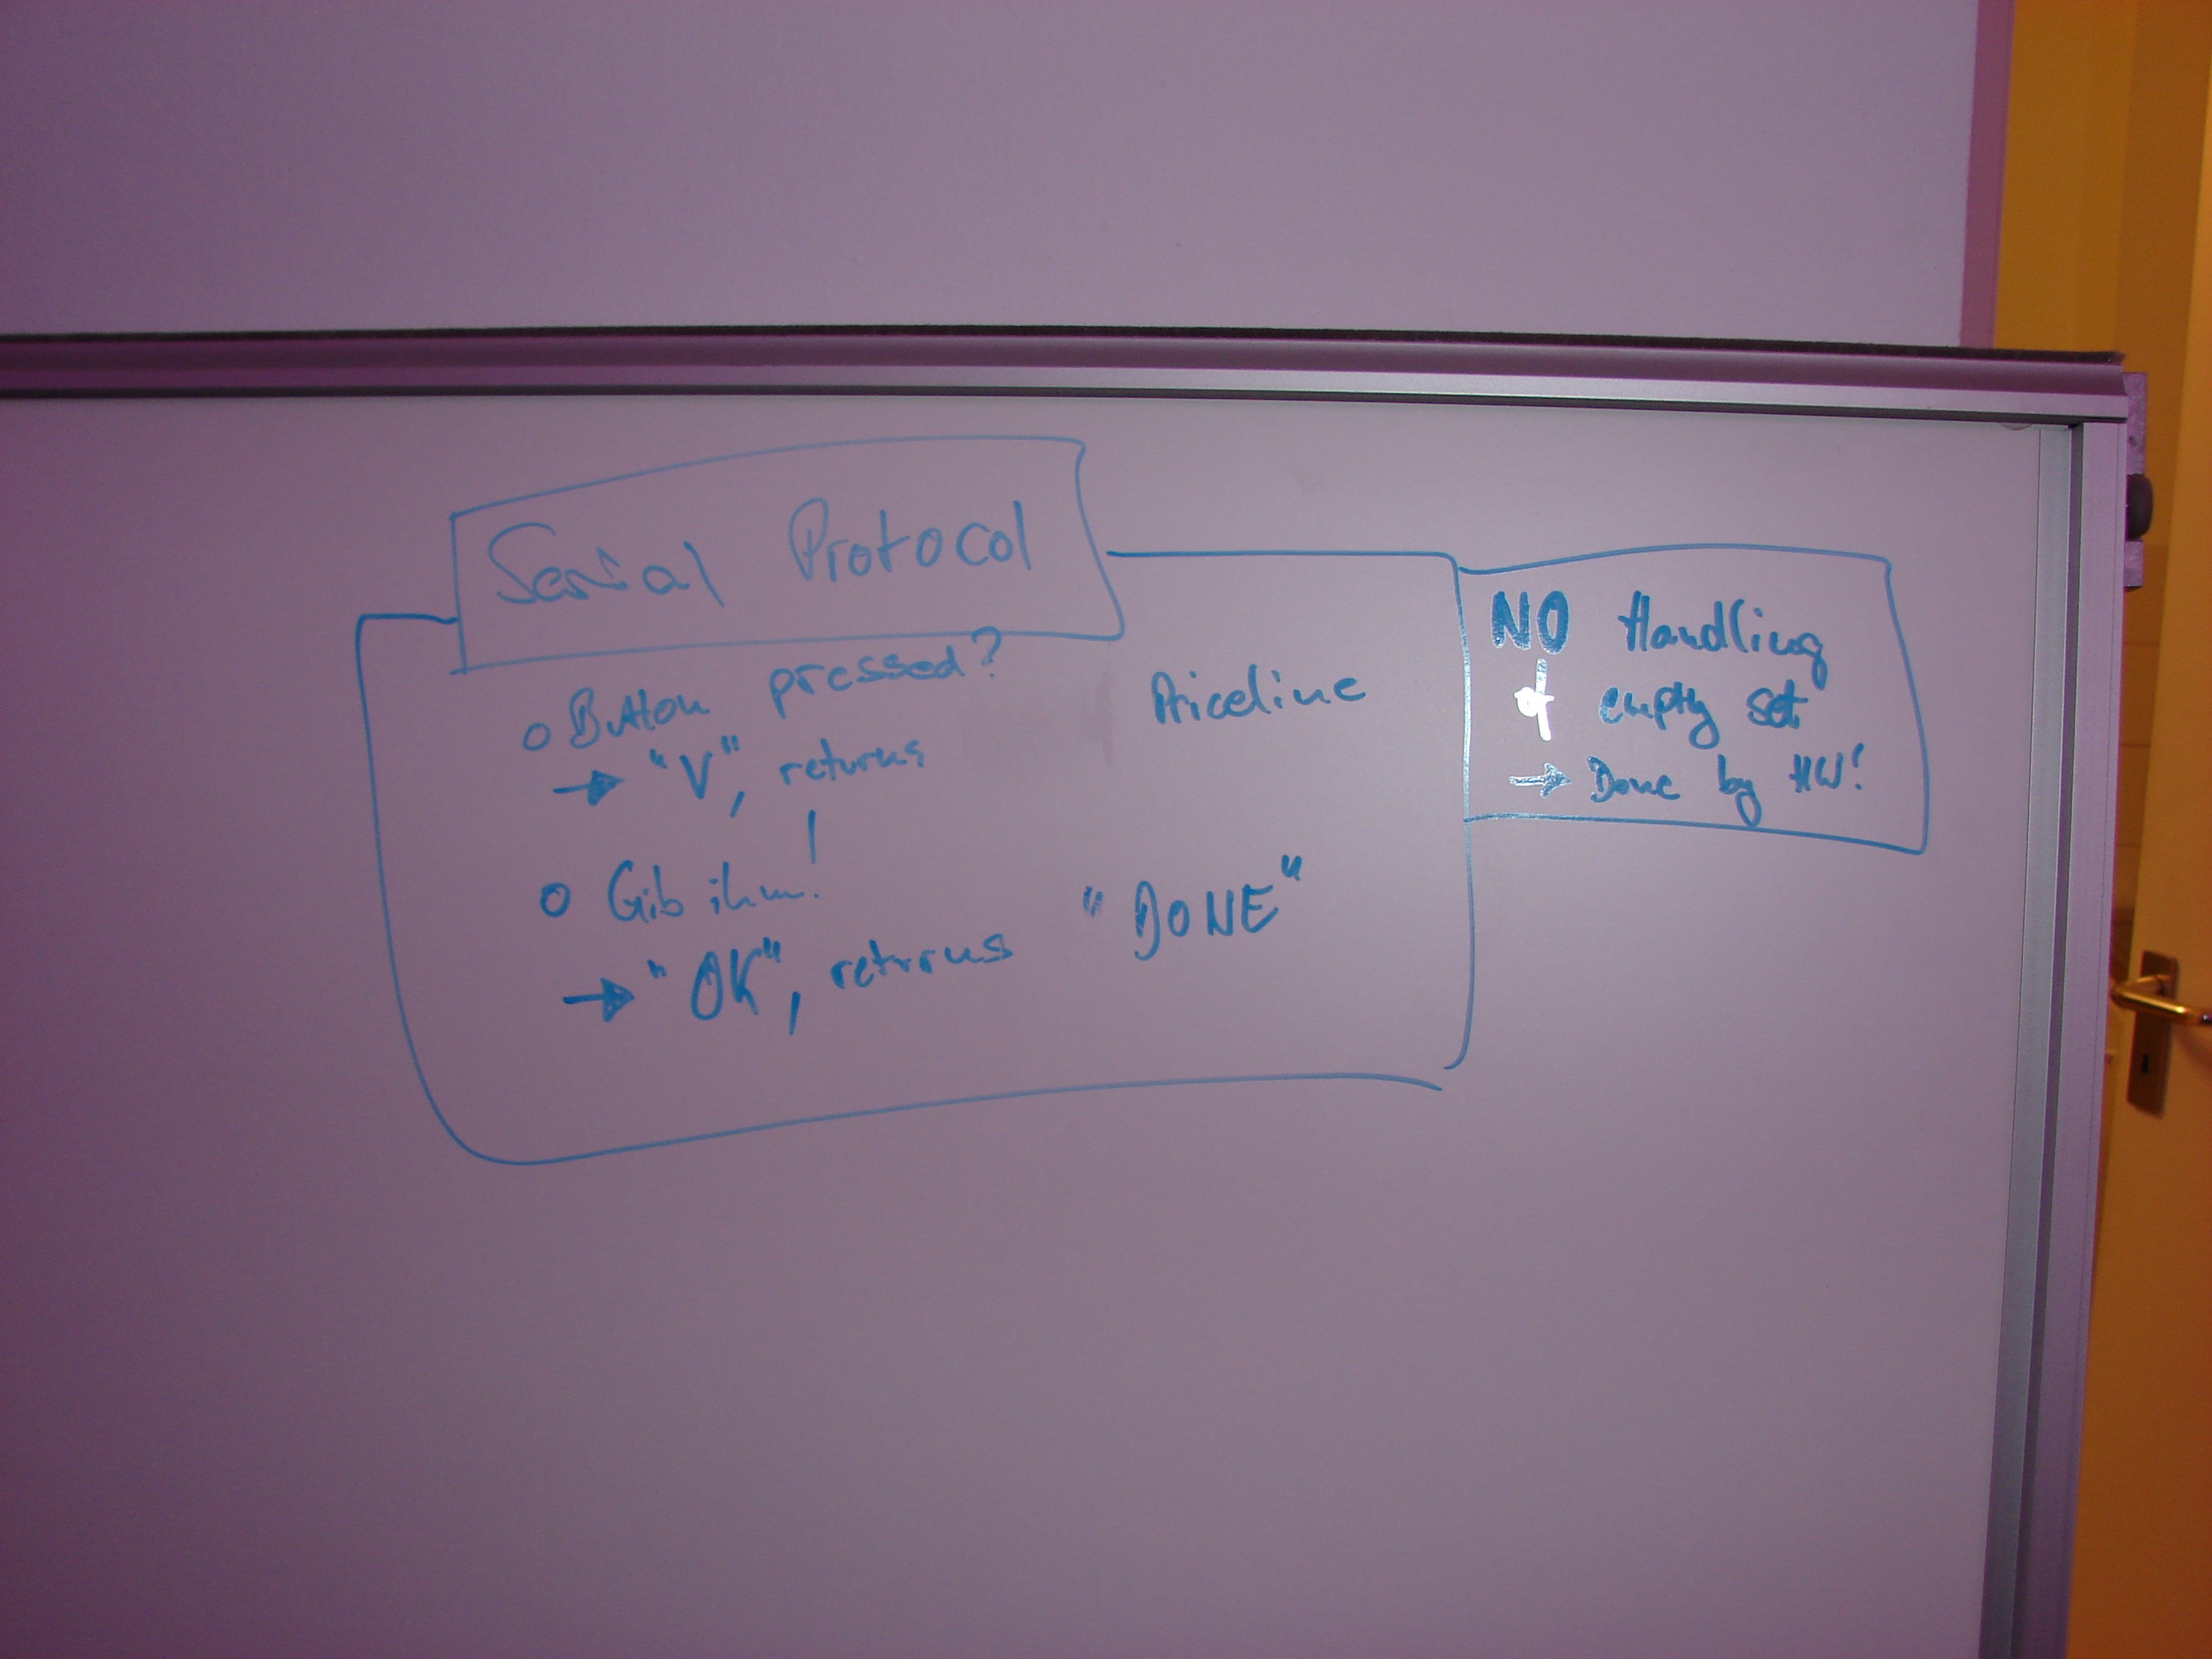 Serial Protocol
o Button pressed?
→ "V", returns Priceline
o Gib ihm!
→ "OK", returns "DONE"
NO Handling
of empty set
→ Done by HW!